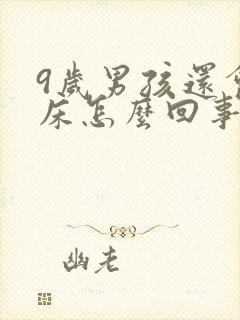 9歲男孩還會
床怎麼回事
幽老